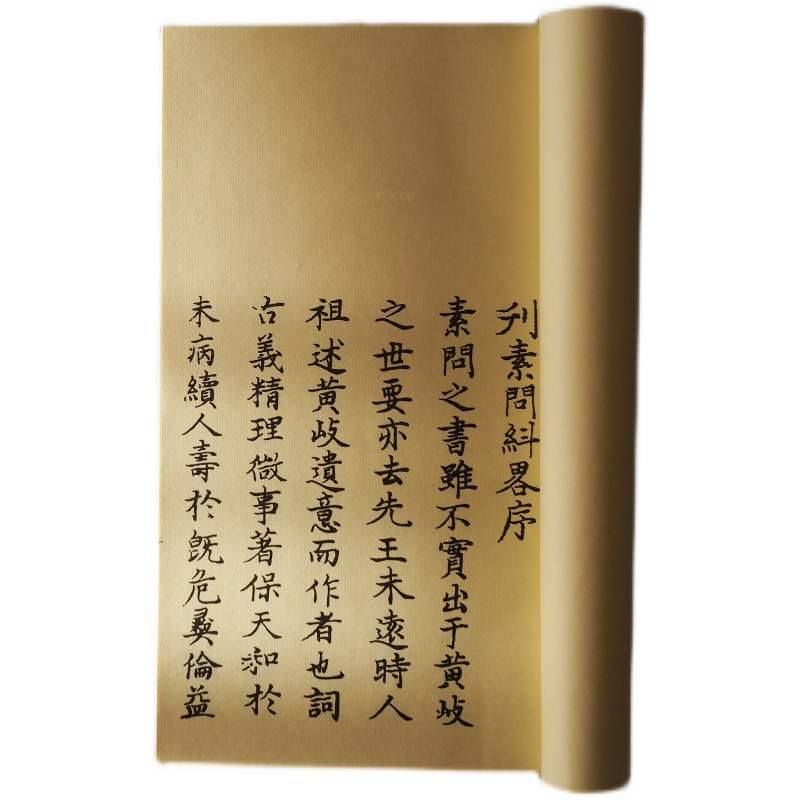 刋素問紏畧序
素問之書雖不實出于黃岐
之世要亦去先王未遠時人
祖述黃岐遺意而作者也詞
古義精理微事著保天和於
未病續人壽於既危彝倫益